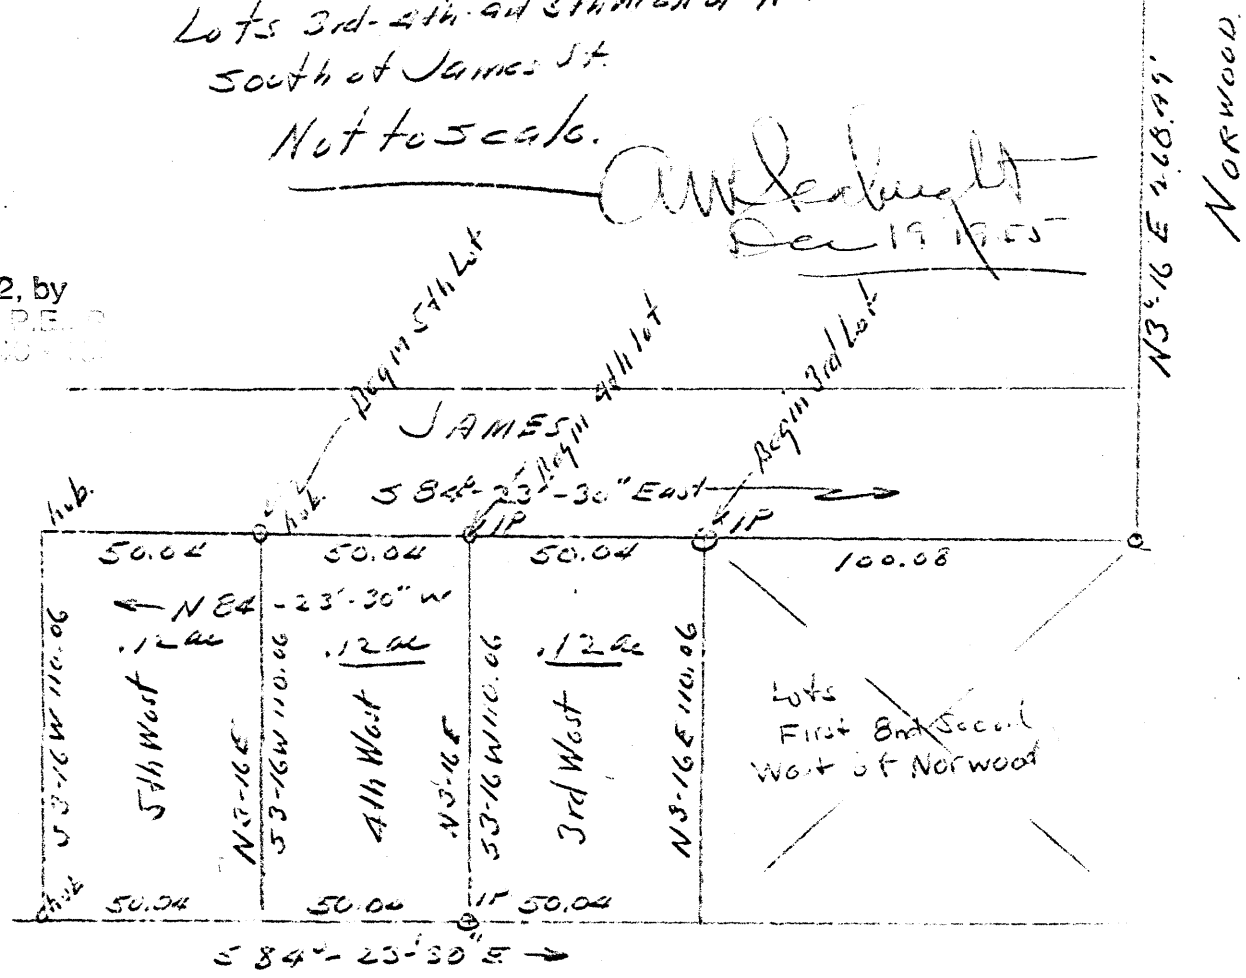 Lots 3rd-4th-and 5th
South of James St.
Not to scale.
Dec 19 1955
NORWOOD
N3°-16 E 268.49'
2, by
P.E.
Begin 5th Lot
Begin 4th lot
Begin 3rd Lot
JAMES
S 84°-23'-30" East
hub.
hub.
IP
IP
50.04
50.04
50.04
100.08
N 84-23'-30" W
.12 ac
.12 ac
.12 ac
S3-16W 110.06
5th West
N3-16E
S3-16W 110.06
4th West
N3-16E
S3-16W 110.06
3rd West
N3-16E 110.06
Lots
First and Second
West of Norwood
hub
50.04
50.04
IP
50.04
S 84°-23'30" E